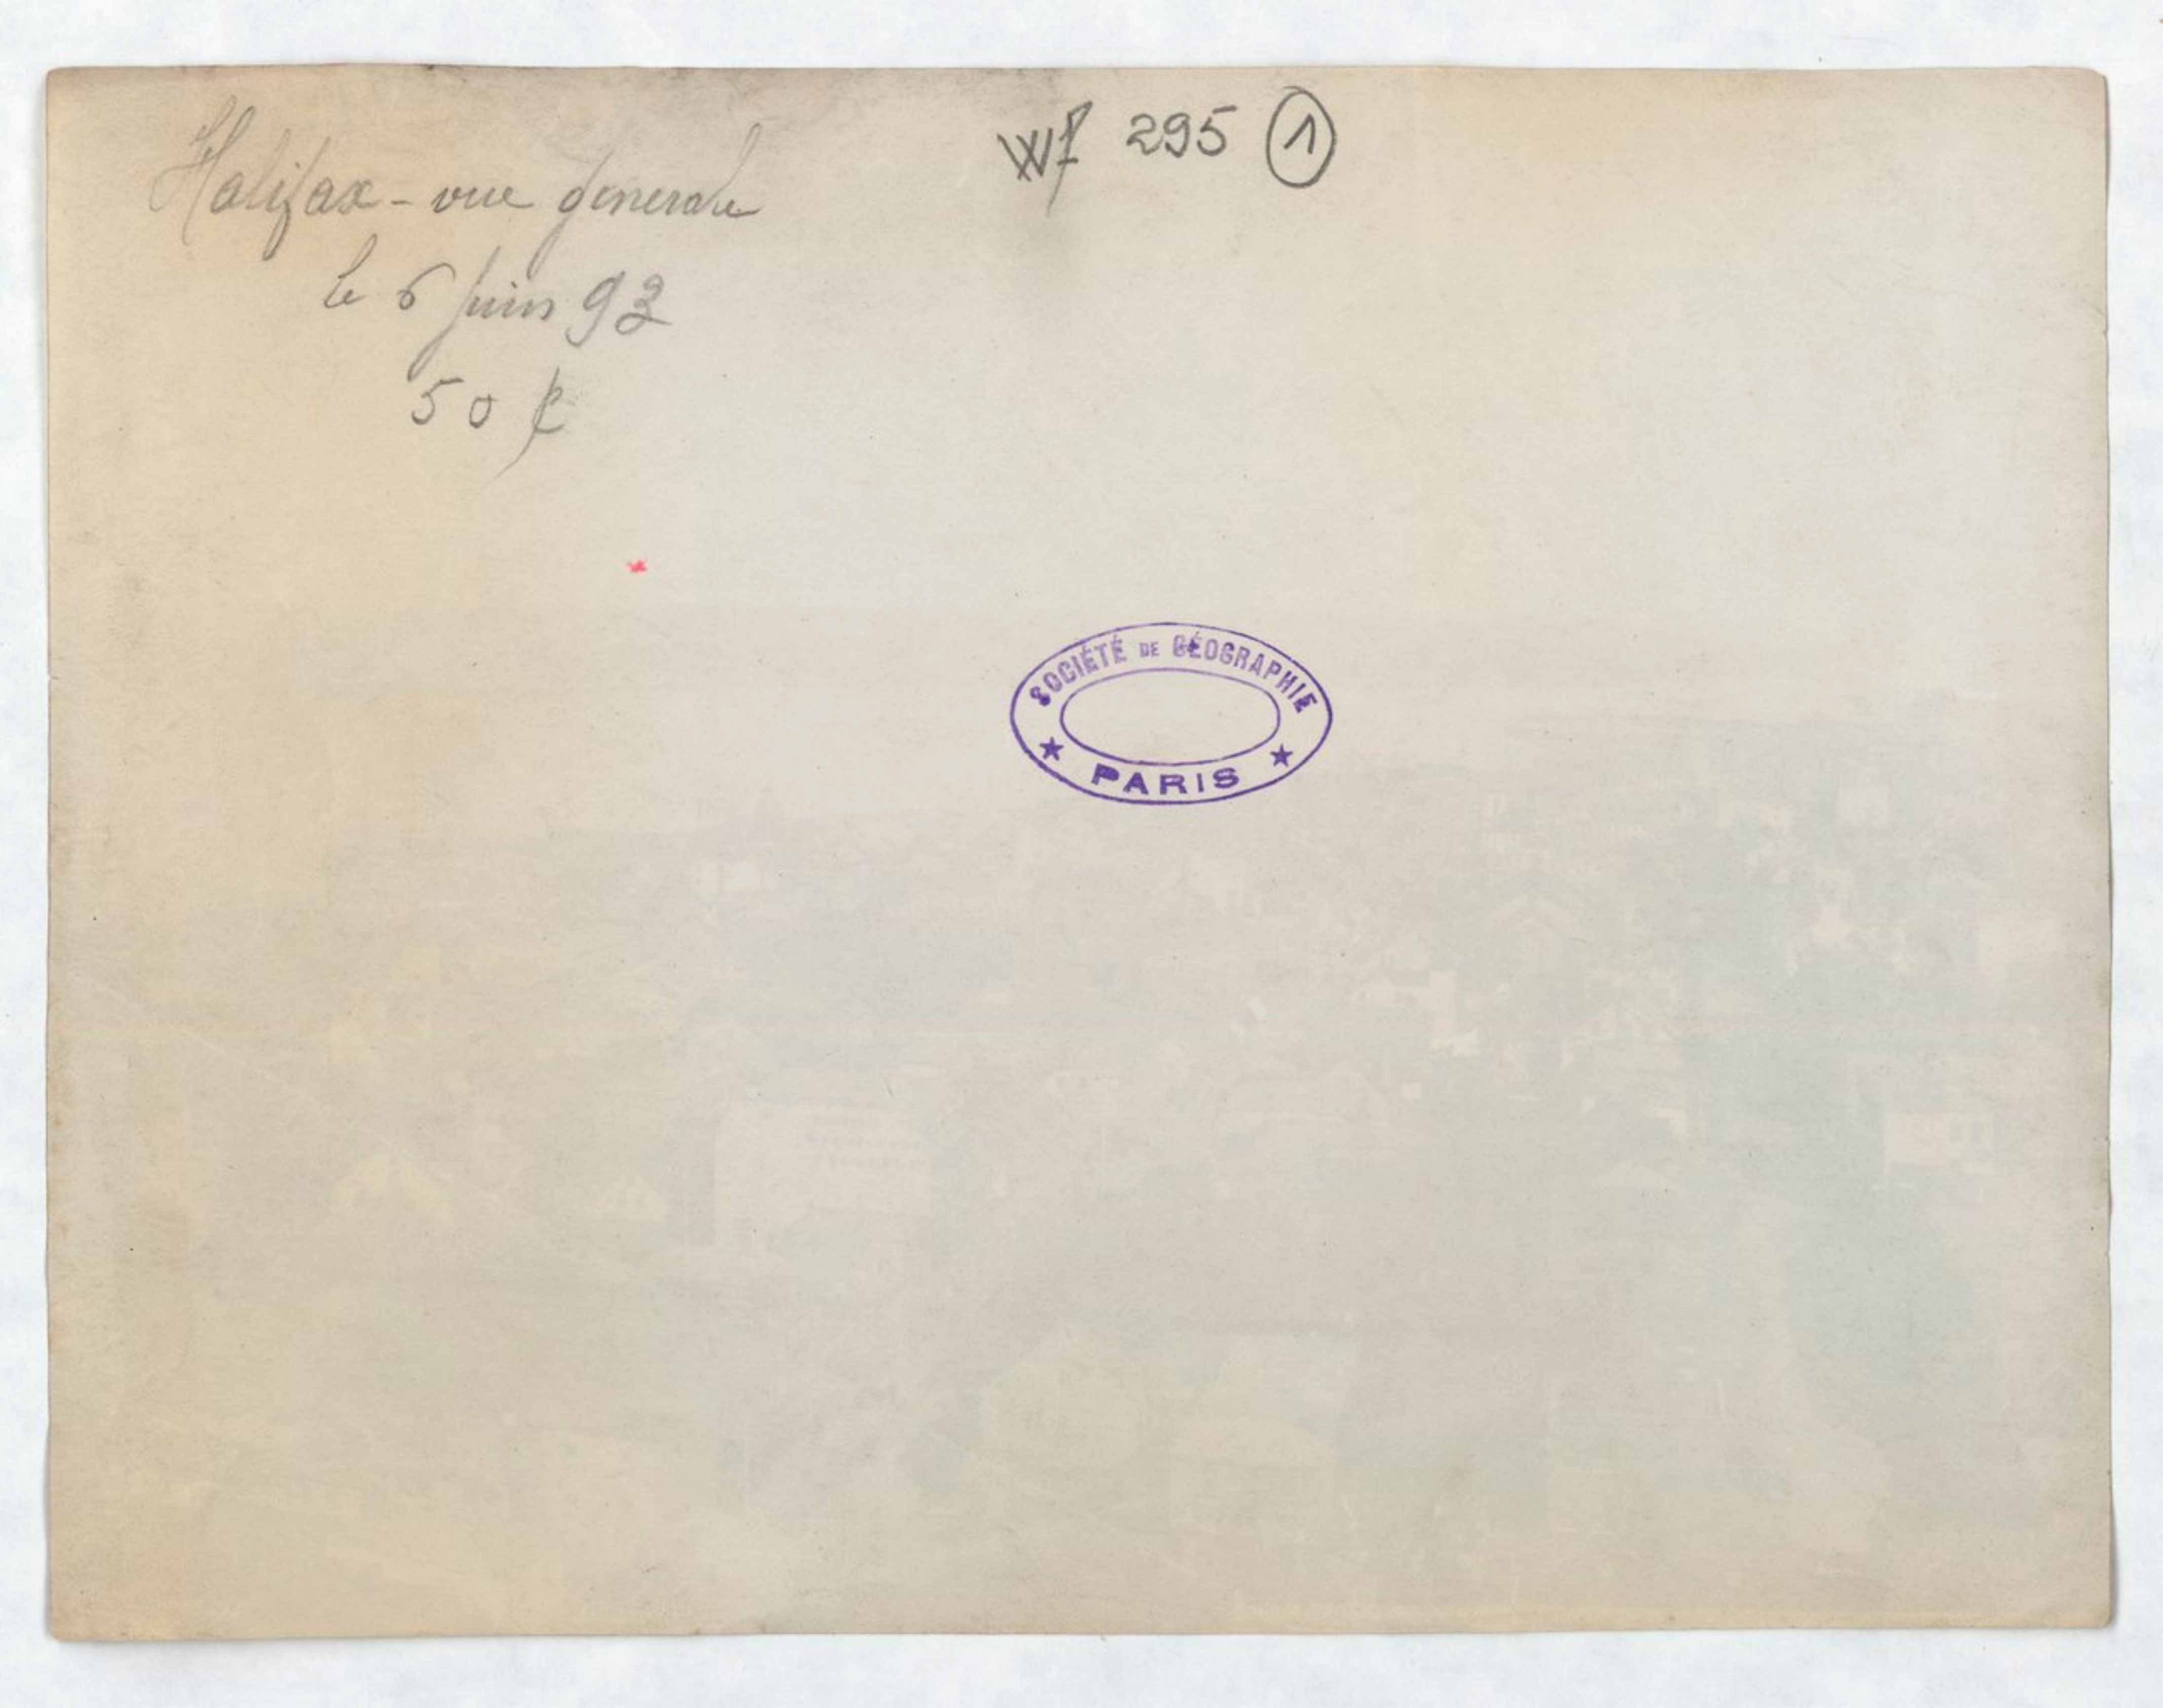 Halifax - vue generale
le 6 juin 93
50 ¢
Wf 295 1
SOCIÉTÉ DE GÉOGRAPHIE
★ PARIS ★